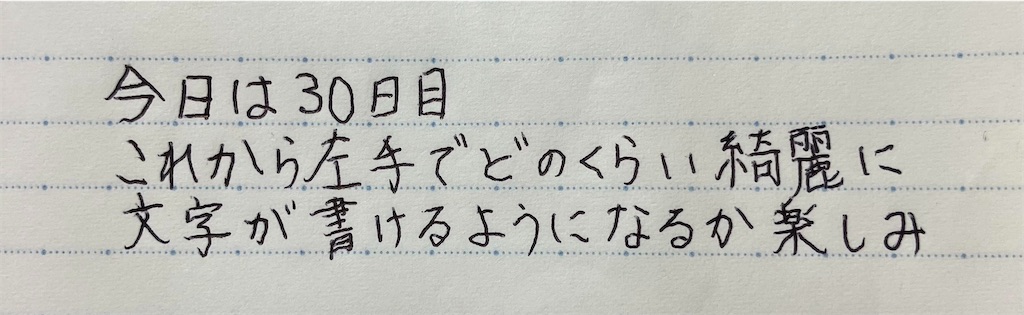 今日は30日目
これから左手でどのくらい綺麗に
文字が書けるようになるか楽しみ